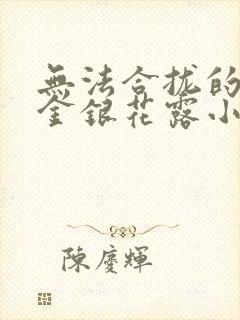 無法合拢的
金銀花露小
陳慶輝